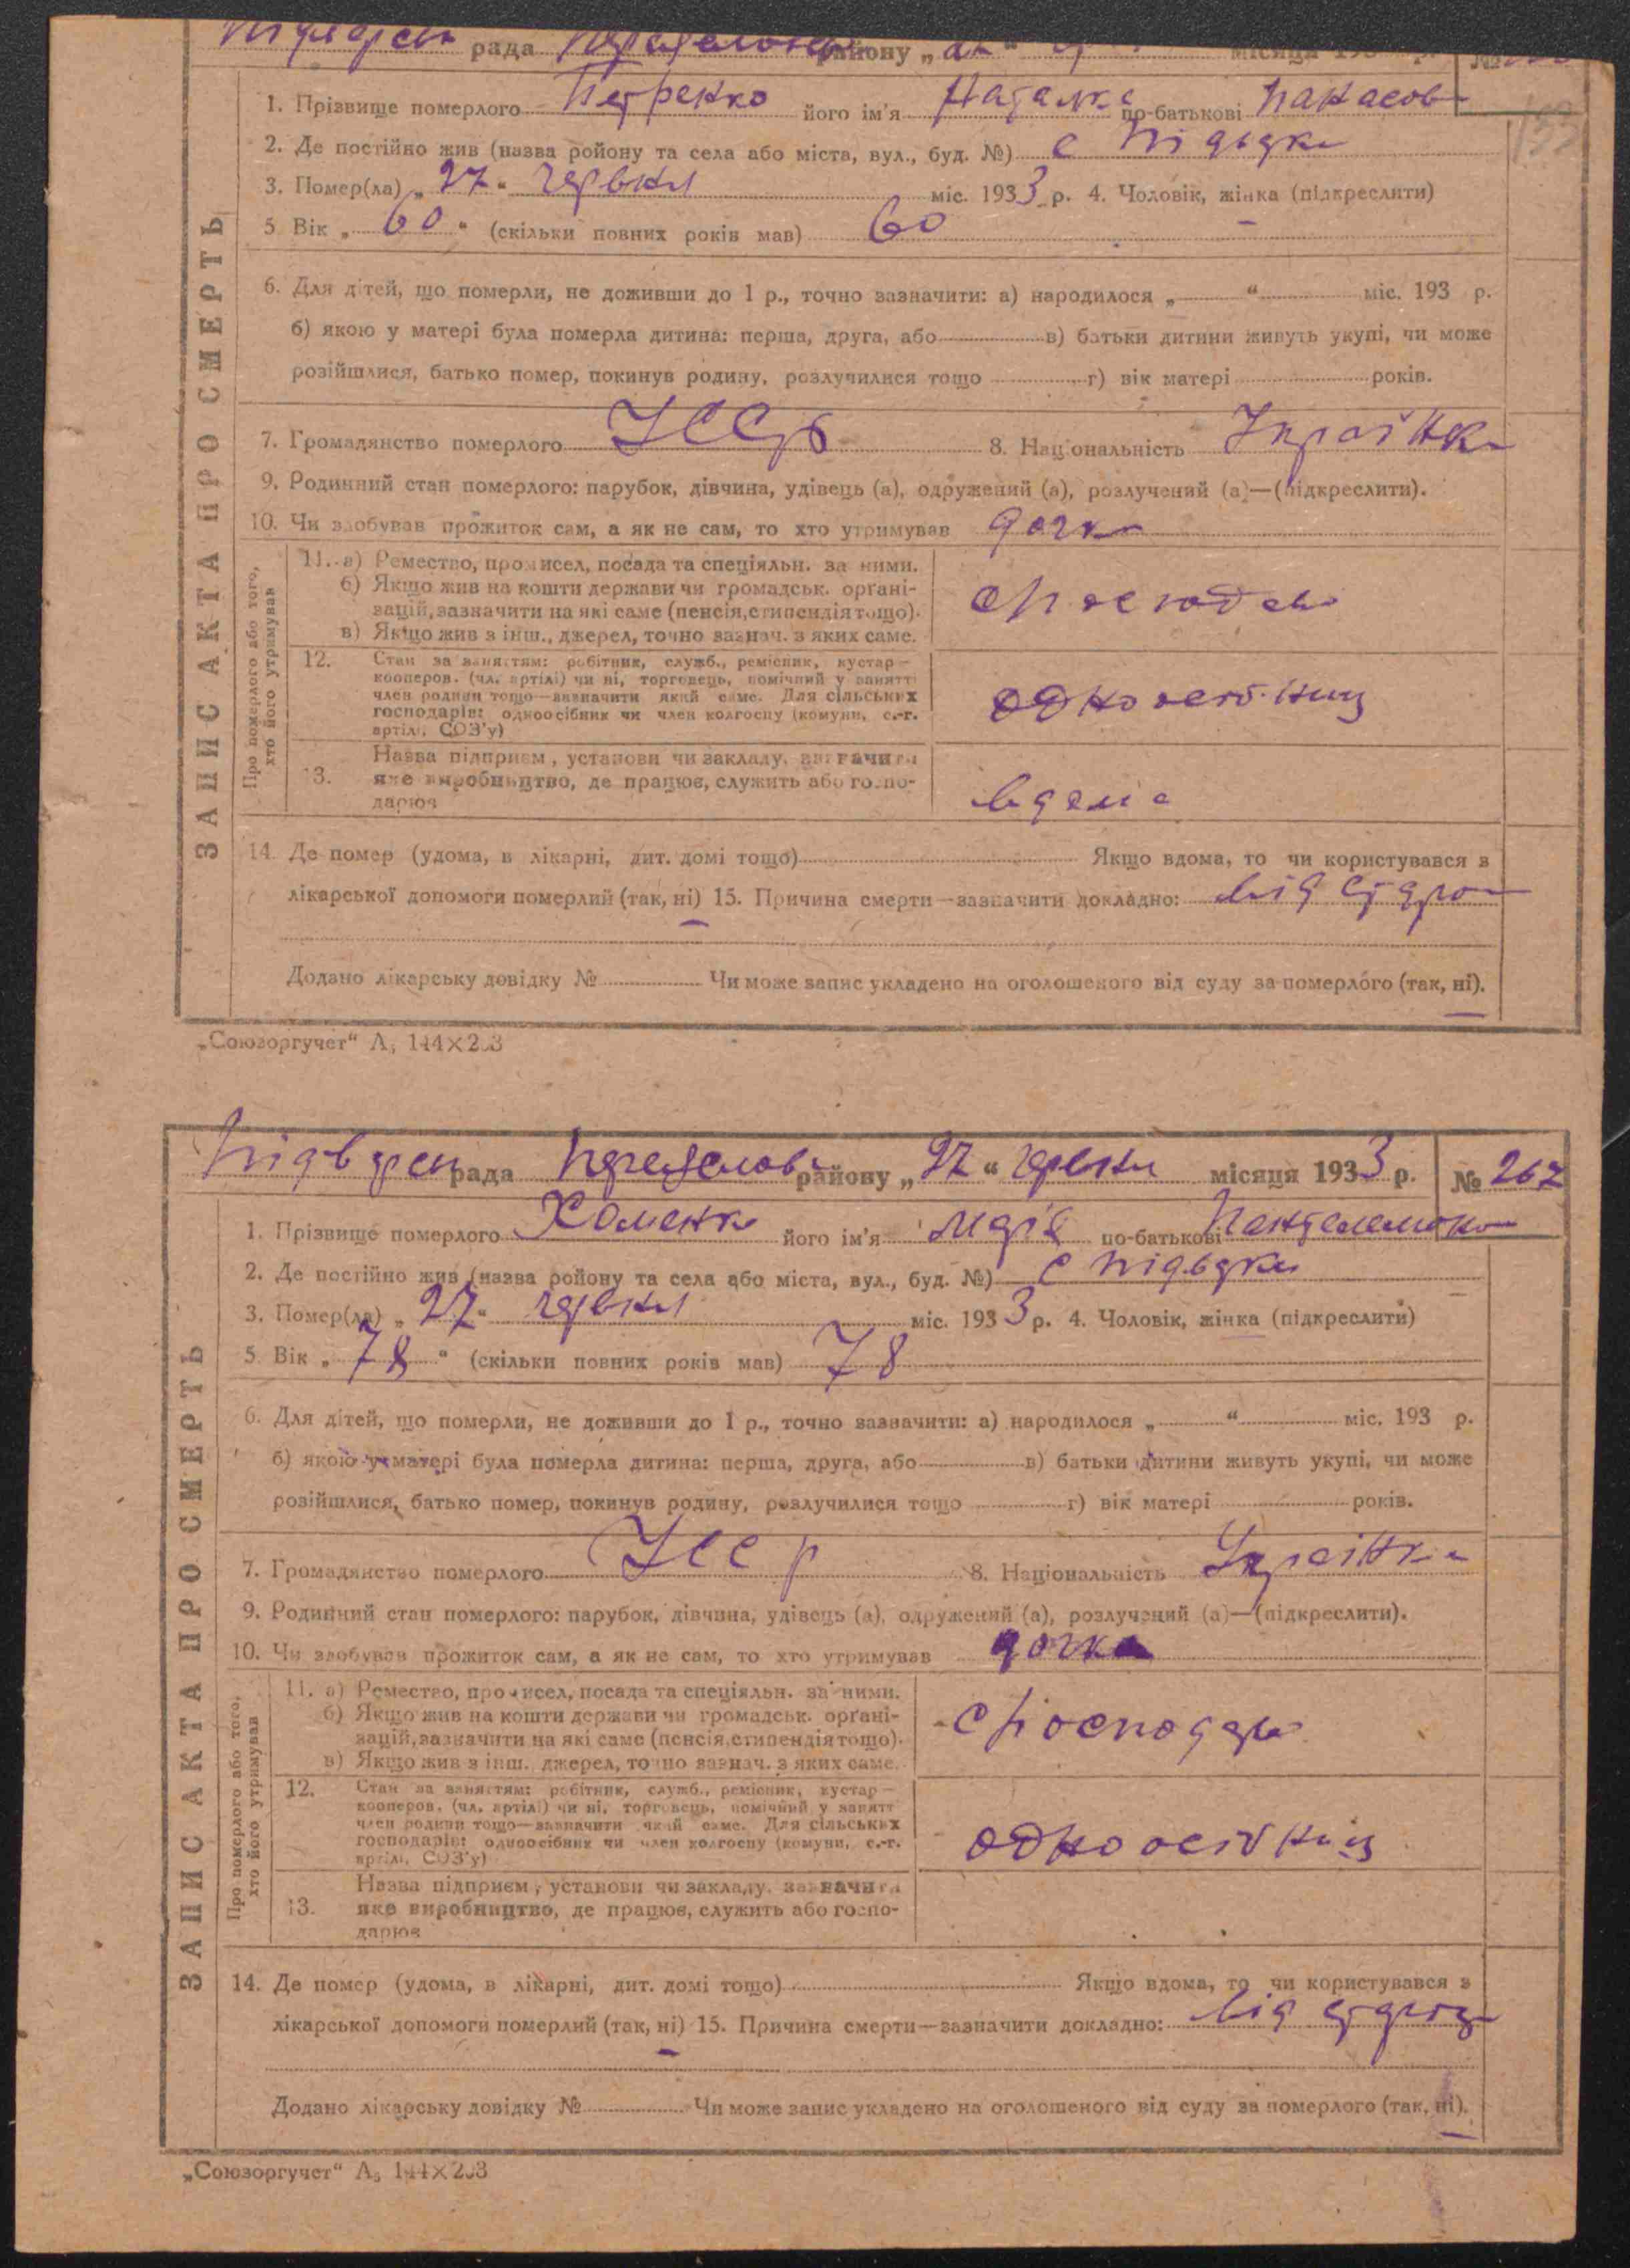 рада району „
1. Прізвище померлого Петренко його ім'я Наталка по-батькові Панасов
2. Де постійно жив (назва ройону та села або міста, вул., буд. №) с
3. Помер(ла) „ 27 “ червня міс. 1933 р. 4. Чоловік, жінка (підкреслити)
5. Вік „ 60 “ (скільки повних років мав) 60
6. Для дітей, що померли, не доживши до 1 р., точно зазначити: а) народилося „ “ міс. 193 р.
б) якою у матері була померла дитина: перша, друга, або в) батьки дитини живуть укупі, чи може
розійшлися, батько помер, покинув родину, розлучилися тощо г) вік матері років.
7. Громадянство померлого УССР 8. Національність Українка
9. Родинний стан померлого: парубок, дівчина, удівець (а), одружений (а), розлучений (а)—(підкреслити).
10. Чи здобував прожиток сам, а як не сам, то хто утримував дочка
ЗАПИС АКТА ПРО СМЕРТЬ
Про померлого або того,
хто його утримував
11. а) Ремество, промисел, посада та спеціяльн. за ними.
б) Якщо жив на кошти держави чи громадськ. органі-
зацій, зазначити на які саме (пенсія, стипендія тощо).
в) Якщо жив з інш., джерел, точно зазнач. з яких саме.
12. Стан за заняттям: робітник, служб., ремісник, кустар—
кооперов. (чл. артілі) чи ні, торговець, помічний у занятт
член родини тощо—зазначити який саме. Для сільських
господарів: одноосібник чи член колгоспу (комуни, с.-г.
артілі, СОЗ'у)
Назва підприєм, установи чи закладу, зазначити
13. яке виробництво, де працює, служить або госпо-
дарює
14. Де помер (удома, в лікарні, дит. домі тощо) Якщо вдома, то чи користувався з
лікарської допомоги померлий (так, ні) 15. Причина смерти—зазначити докладно: від
Додано лікарську довідку № Чи може запис укладено на оголошеного від суду за померлого (так, ні).
„Союзоргучет“ А5 144×203
рада району „27“ червня місяця 1933 р. № 267
1. Прізвище померлого Хоменко його ім'я Марія по-батькові
2. Де постійно жив (назва ройону та села або міста, вул., буд. №) с
3. Помер(ла) „ 27 “ червня міс. 1933 р. 4. Чоловік, жінка (підкреслити)
5. Вік „ 78 “ (скільки повних років мав) 78
6. Для дітей, що померли, не доживши до 1 р., точно зазначити: а) народилося „ “ міс. 193 р.
б) якою у матері була померла дитина: перша, друга, або в) батьки дитини живуть укупі, чи може
розійшлися, батько помер, покинув родину, розлучилися тощо г) вік матері років.
7. Громадянство померлого УССР 8. Національність Українка
9. Родинний стан померлого: парубок, дівчина, удівець (а), одружений (а), розлучений (а)—(підкреслити).
10. Чи здобував прожиток сам, а як не сам, то хто утримував дочка
ЗАПИС АКТА ПРО СМЕРТЬ
Про померлого або того,
хто його утримував
11. а) Ремество, промисел, посада та спеціяльн. за ними.
б) Якщо жив на кошти держави чи громадськ. органі-
зацій, зазначити на які саме (пенсія, стипендія тощо).
в) Якщо жив з інш. джерел, точно зазнач. з яких саме.
12. Стан за заняттям: робітник, служб., ремісник, кустар—
кооперов. (чл. артілі) чи ні, торговець, помічний у занятт
член родини тощо—зазначити який саме. Для сільських
господарів: одноосібник чи член колгоспу (комуни, с.-г.
артілі, СОЗ'у)
одноосібниц
Назва підприєм, установи чи закладу, зазначити
13. яке виробництво, де працює, служить або госпо-
дарює
14. Де помер (удома, в лікарні, дит. домі тощо) Якщо вдома, то чи користувався з
лікарської допомоги померлий (так, ні) 15. Причина смерти—зазначити докладно: від
Додано лікарську довідку № Чи може запис укладено на оголошеного від суду за померлого (так, ні).
„Союзоргучет“ А5 144×203